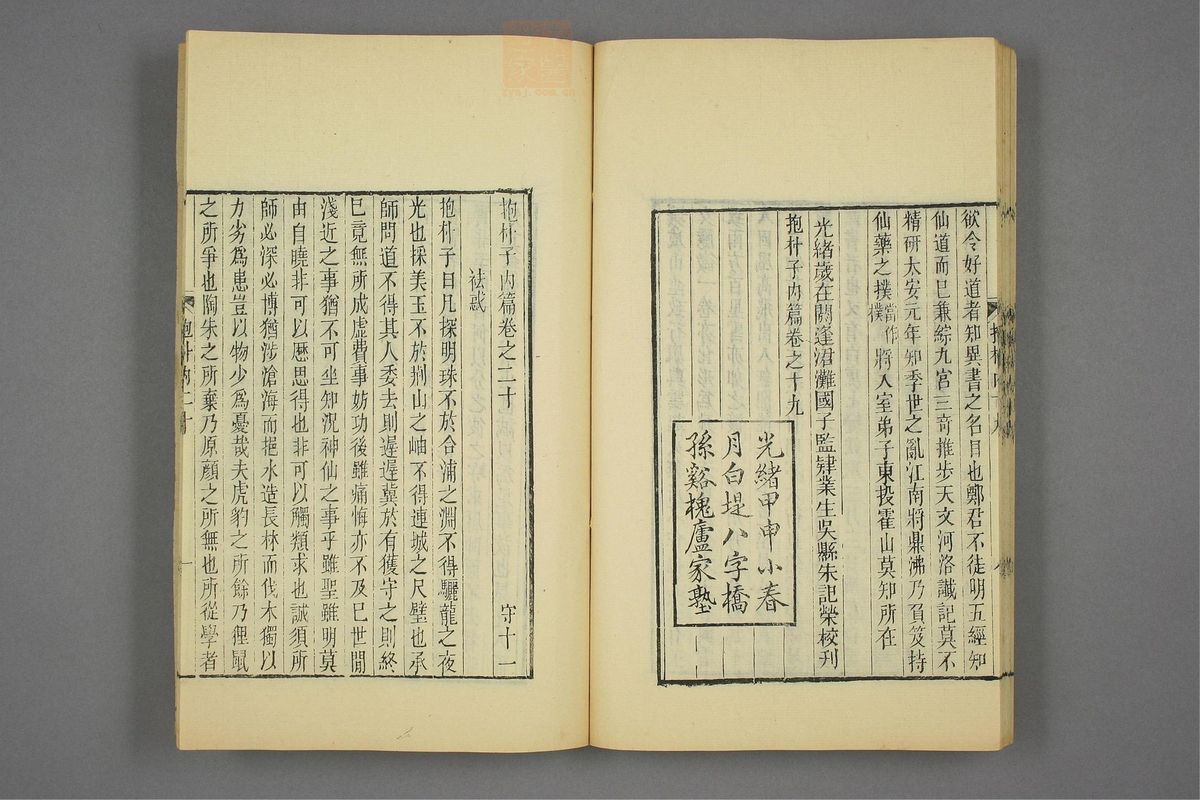 欲令好道者知異書之名目也鄭君不徒明五經知
仙道而已兼綜九宮三奇推步天文河洛讖記莫不
精研太安元年知季世之亂江南將鼎沸乃負笈持
仙藥之撲當作樸將入室弟子東投霍山莫知所在
光緒歲在閼逢涒灘國子監肄業生吳縣朱記榮校刊
抱朴子內篇卷之十九
光緒甲申小春
月白堤八字橋
孫谿槐廬家塾
抱朴子內篇卷之二十 守十一
祛惑
抱朴子曰凡探明珠不於合浦之淵不得驪龍之夜
光也採美玉不於荆山之岫不得連城之尺璧也承
師問道不得其人委去則遲遲冀於有獲守之則終
已竟無所成虛費事妨功後雖痛悔亦不及已世閒
淺近之事猶不可坐知況神仙之事乎雖聖雖明莫
由自曉非可以歷思得也非可以觸類求也誠須所
師必深必博猶涉滄海而挹水造長林而伐木獨以
力劣爲患豈以物少爲憂哉夫虎豹之所餘乃狸鼠
之所爭也陶朱之所棄乃原顏之所無也所從學者
抱朴內二十
一